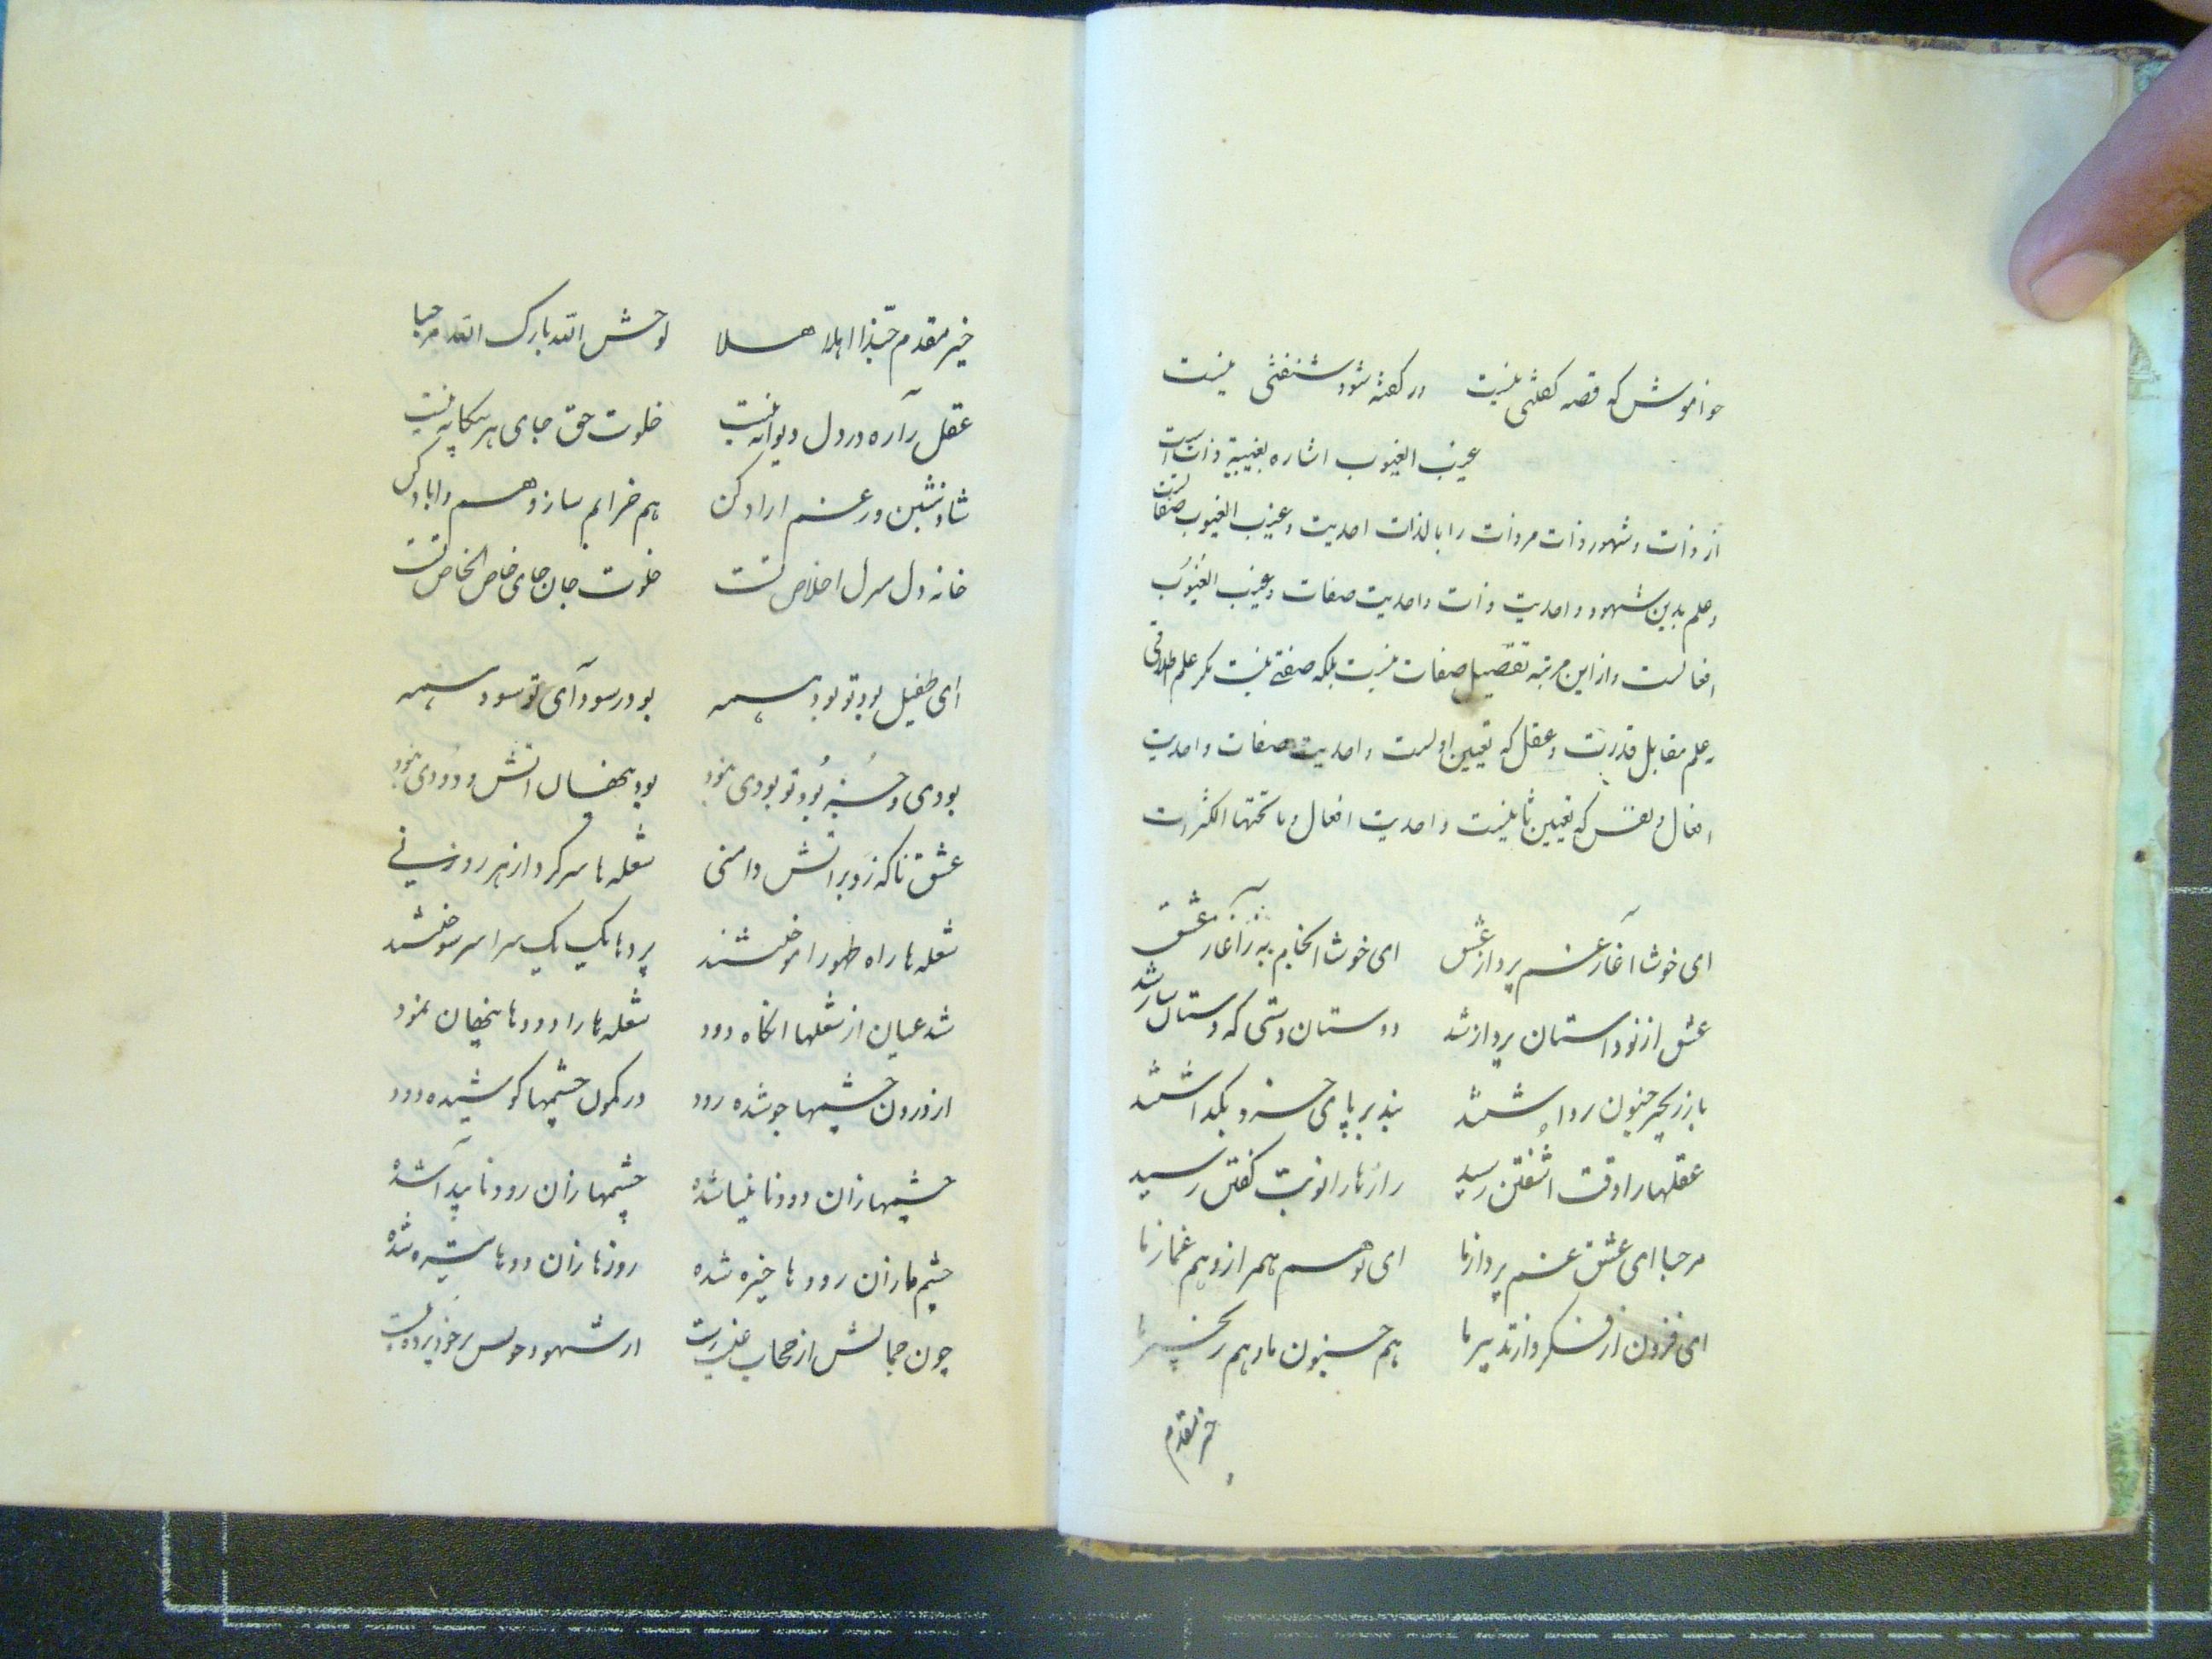 خواموش که قصه گفتنی نیست در گفته شود شنفتنی نیست
غیب الغیوب اشاره بغیبیة ذات است
از ذات و شهود ذات مر ذات را بالذات احدیت و غیب الغیوب صفات است
و علم بدین شهود واحدیت ذات واحدیت صفات و غیب الغیوب
افعالست و از این مرتبه تفصیل صفات نیست بلکه صفتی نیست مگر علم اطلاقی
علم مقابل قدرت و عقل که تعین اولست واحدیت صفات واحدیت
افعال و نفس که تعین ثانیست واحدیت افعال و ما تحتها الکثرات
ای خوشا آغاز غم پرداز عشق ای خوشا انجام به ز آغاز عشق
عشق از نو داستان پرداز شد دوستان دستی که دستان ساز شد
باز زنجیر جنون برداشتند بند بر پای خرد بگذاشتند
عقلها را وقت آشفتن رسید رازها را نوبت گفتن رسید
مرحبا ای عشق غم پرداز ما ای تو هم همراز و هم غماز ما
ای فزون از فکر و از تدبیر ما هم جنون ما و هم زنجیر ما
خیر مقدم
خیر مقدم حبذا اهلا هلا لوحش الله بارک الله مرحبا
عقل را ره در دل دیوانه نیست خلوت حق جای هر بیگانه نیست
شاد نشین و ز غم آزاد کن هم خرابم ساز و هم آباد کن
خانه دل منزل اخلاص تست خلوت جان جای خاص الخاص تست
ای طفیل بود تو بود همه بود در سودای تو سود همه
بودی و جز بود تو بودی نبود بود پنهان آتش و دودی نبود
عشق ناگه زد بر آتش دامنی شعله ها سر کرد از هر روزنی
شعله ها راه ظهور آموختند پردها یک یک سراسر سوختند
شد عیان از شعلها آنگاه دود شعله ها را دودها پنهان نمود
از درون چشمها جوشده رود در کمون چشمها کوشیده دود
چشمها زان دود نابینا شده چشمها زان رود ناپیدا شده
چشم ها زان رودها خیره شده روزها زان دودها تیره شده
چون جمالش از حجاب غیب رست از شهود خویش بر خود پرده بست